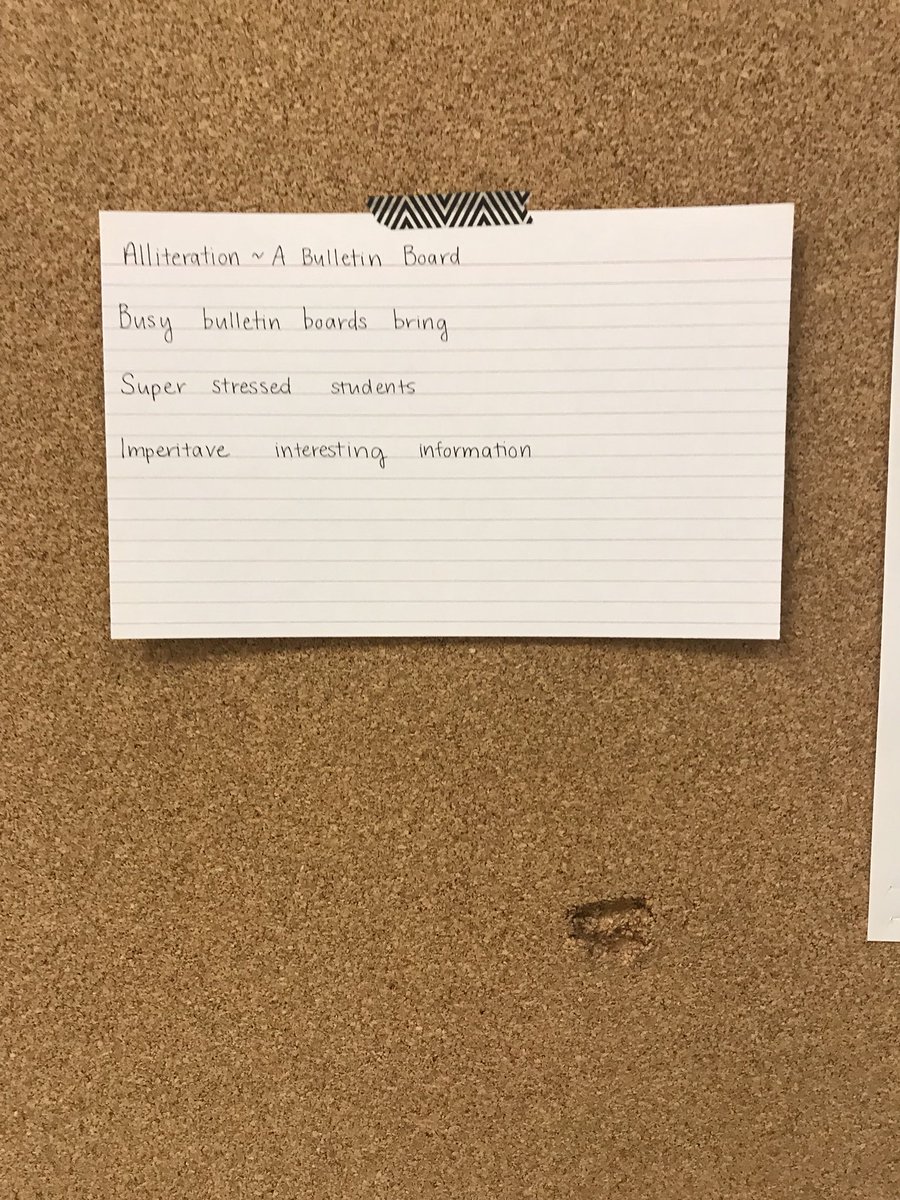 Alliteration ~ A Bulletin Board
Busy bulletin boards bring
Super stressed students
Imperitave interesting information